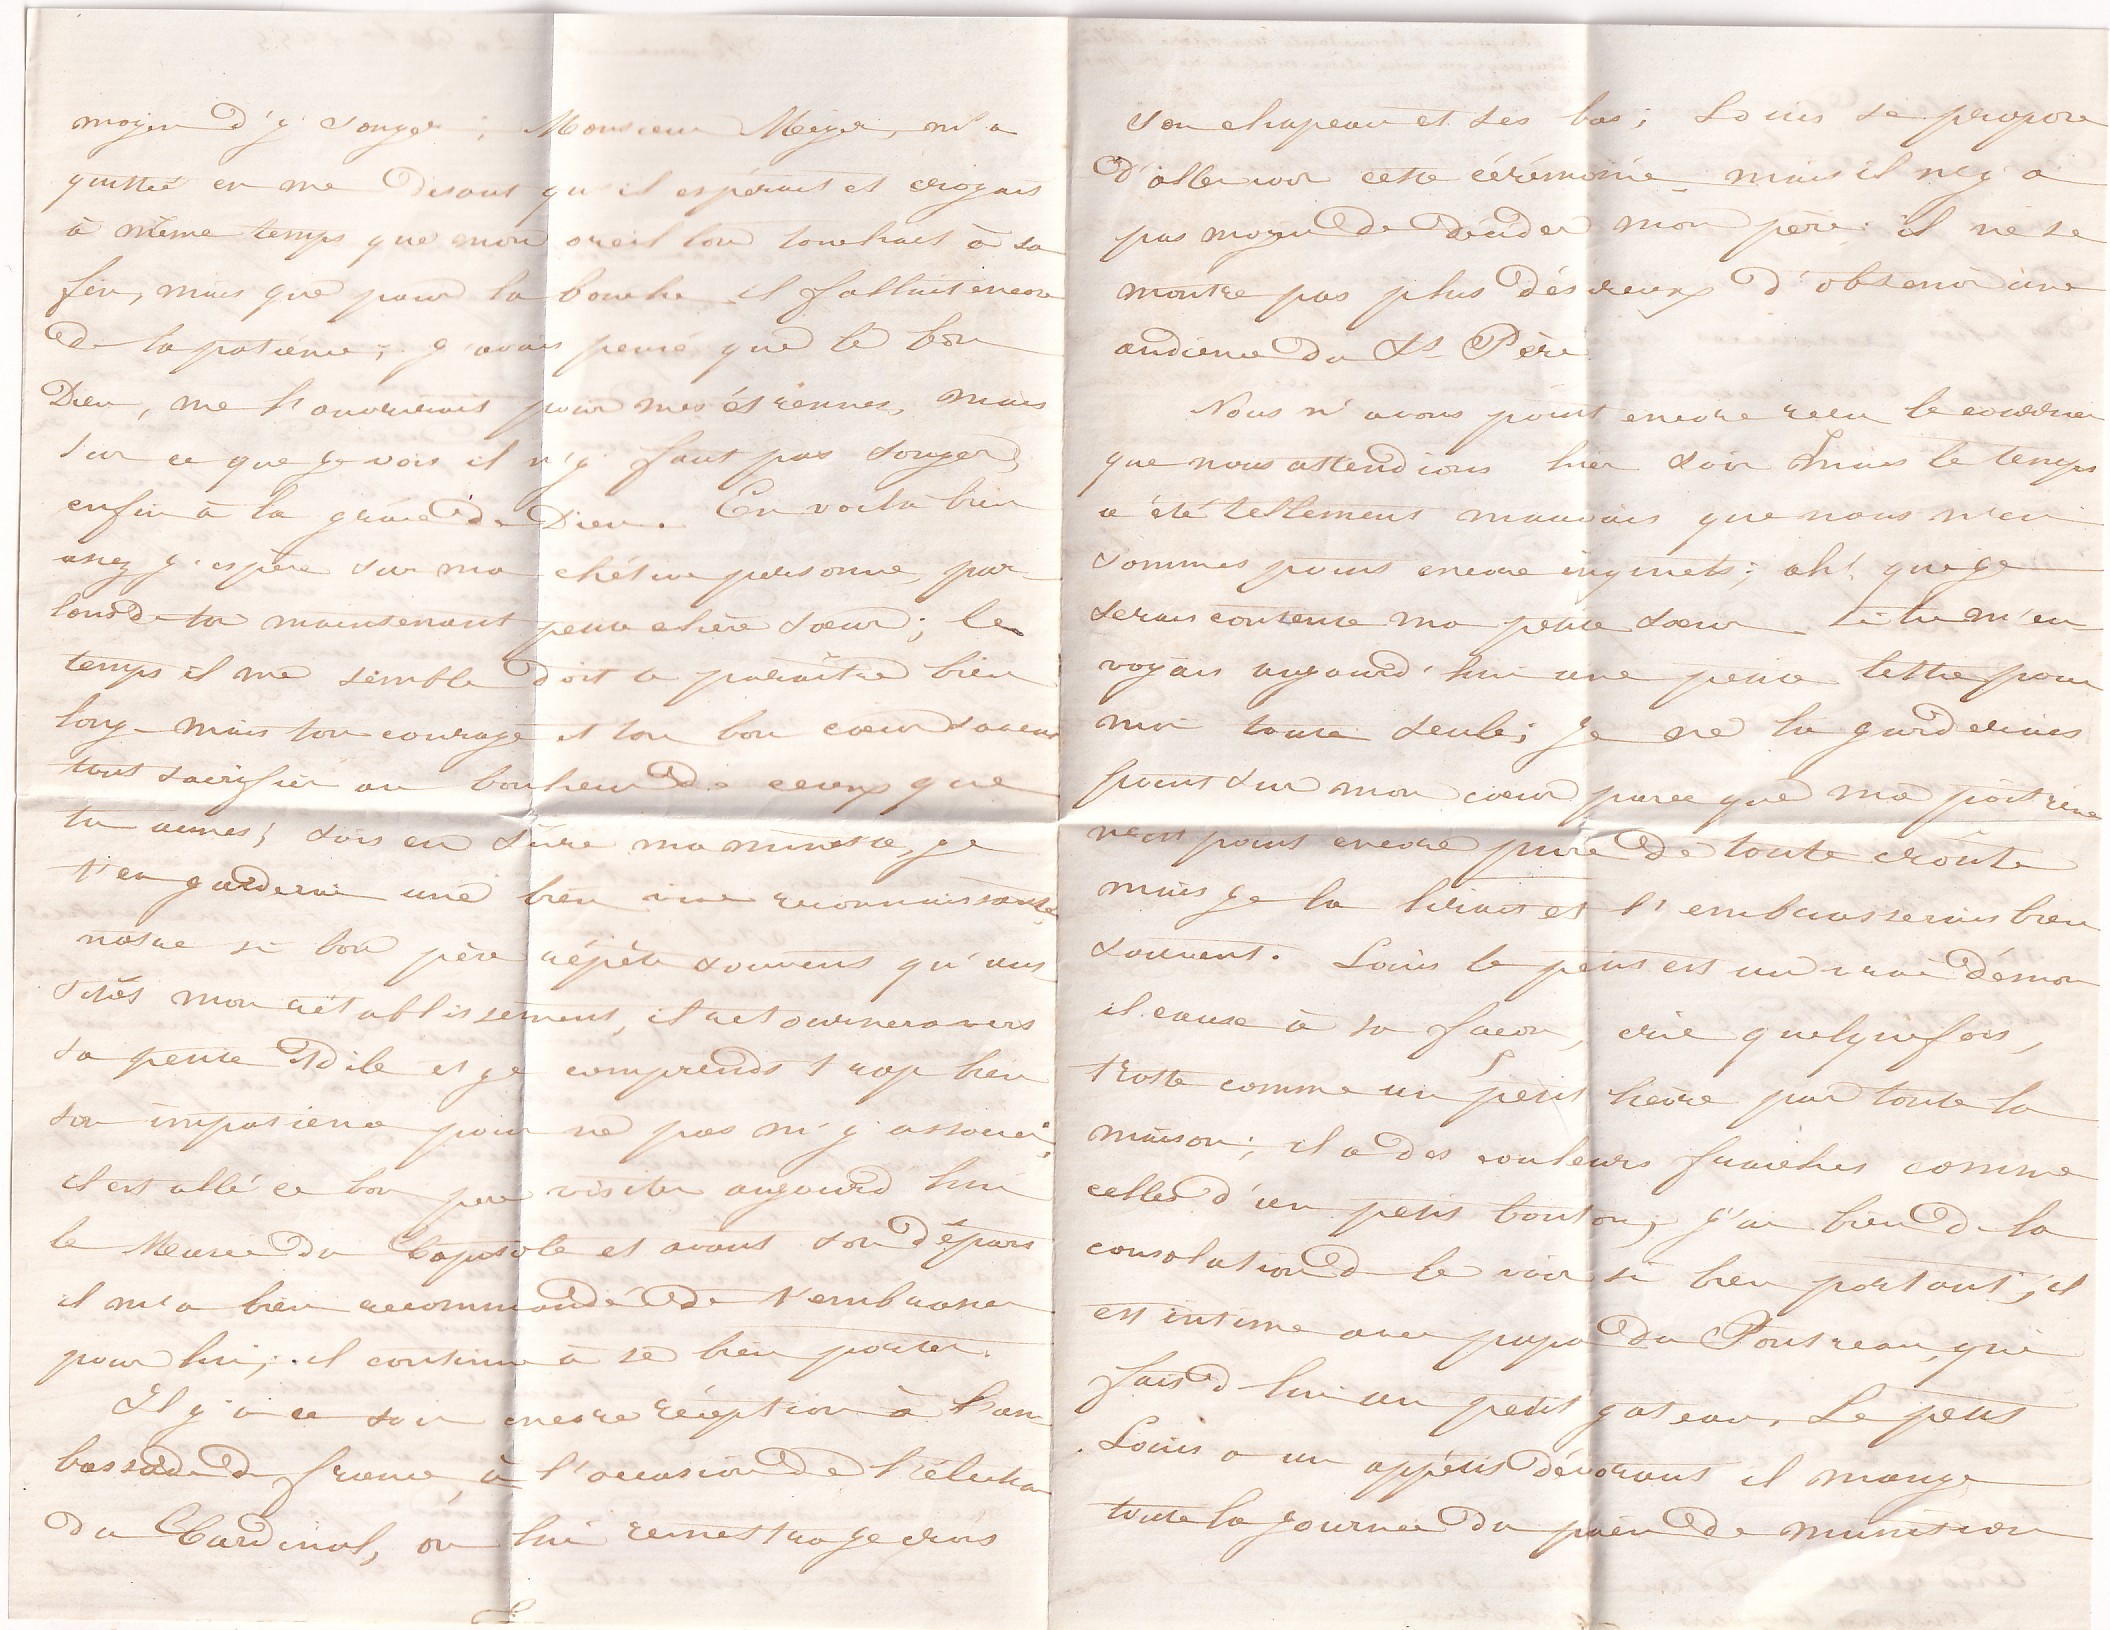 moyen d'y songer ; Monsieur Meyer, m'a
quittée en me disant qu'il espérait et croyait
à même temps que mon oreillon touchait à sa
fin, mais que pour la bouche il fallait encore
de la patience ; j'avais pensé que le bon
Dieu, me l'ouvrirait pour mes étrennes, mais
sur ce que je vois il n'y faut pas songer,
enfin à la grâce de Dieu. En voilà bien
assez j'espère sur ma chétive personne, par-
lons de toi maintenant petite chère sœur ; le
temps il me semble doit te paraître bien
long - mais ton courage et ton bon cœur savent
tout sacrifier au bonheur de ceux que
tu aimes ; sois en sûre ma minette, je
t'en garderai une bien vive reconnaissance
notre si bon père répète souvent qu'aus
sitôt mon rétablissement, il retournera vers
sa petite Odile et je comprends trop bien
son impatience pour ne pas m'y associer ;
il est allé ce bon père visiter aujourd'hui
le Musée du Capitole et avant son départ
il m'a bien recommandé de t'embrasser
pour lui ; il continue à se bien porter.
Il y a ce soir encore réception à l'am
bassade de france, à l'occasion de l'élection
du Cardinal, on lui remettra je crois
son chapeau et ses bas ; Louis se propose
d'aller voir cette cérémonie - mais il n'y a
pas moyen de décider mon père : il ne se
montre pas plus désireux d'obtenir une
audience du St Père
Nous n'avons point encore reçu le courrier
que nous attendions hier soir mais le temps
a été tellement mauvais que nous n'en
sommes point encore inquiets ; ah ! que je
serais contente ma petite sœur si tu m'en
voyais aujourd'hui une petite lettre pour
moi toute seule ; je ne la garderais
point sur mon cœur parce que ma poitrine
n'est point encore pure de toute croûte
mais je la lirais et l'embrasserais bien
souvent. Louis le petit est un vrai démon
il cause à sa façon, crie quelquefois,
trotte comme un petit lièvre par toute la
maison ; il a des couleurs fraiches comme
celles d'un petit bouton ; j'ai bien de la
consolation de le voir si bien portant ; il
est intime avec papa du Pontreau, qui
fait d lui un petit gateau. Le petit
Louis a un appétit dévorant il mange
toute la journée du pain de munition